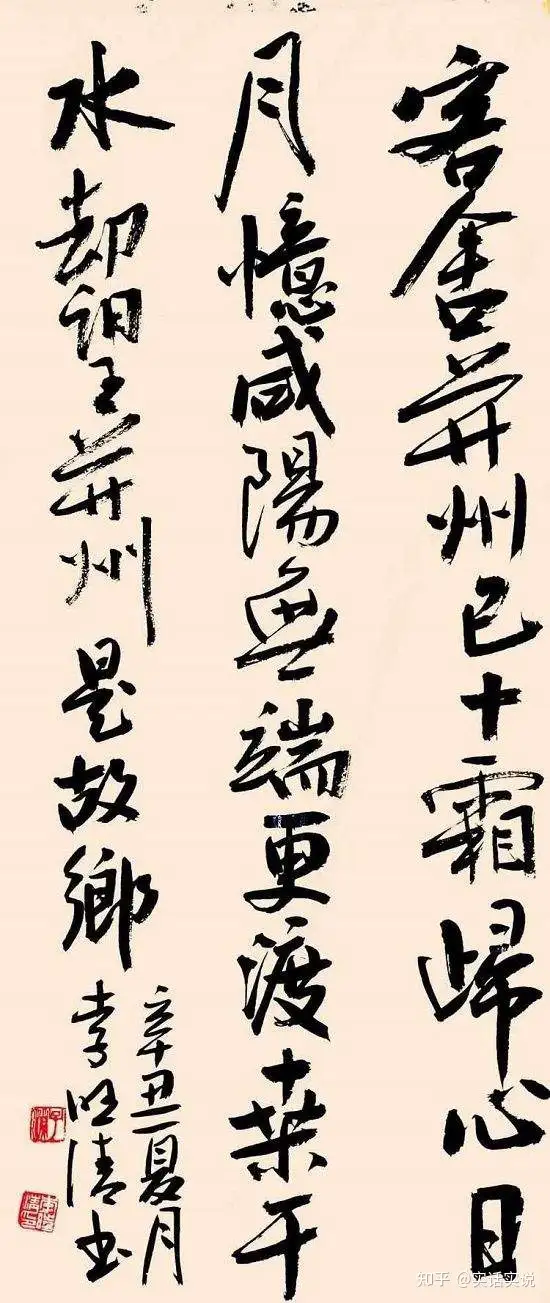 客舍并州已十霜歸心日
月憶咸陽無端更渡桒干
水却望并州是故鄉
辛丑夏月
李旺清书
知乎 @实话实说